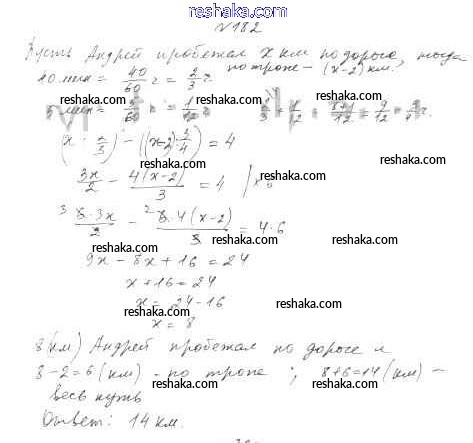 reshaka.com
№182
Пусть Андрей пробежал x км по дороге, тогда
по тропе – (x-2) км.
40 мин = 40/60 ч = 2/3 ч
reshaka.com reshaka.com
5 мин = 5/60 ч = 1/12 ч 2/3 + 1/12 = 8+1/12 = 9/12 = 3/4 ч.
reshaka.com reshaka.com reshaka.com
(x : 2/3) - ((x-2) : 3/4) = 4
reshaka.com
3x/2 - 4(x-2)/3 = 4 | x6
reshaka.com reshaka.com
3 6·3x/2 - 2 6·4(x-2)/3 = 4·6
reshaka.com reshaka.com
9x - 8x + 16 = 24
reshaka.com
x + 16 = 24
reshaka.com
x = 24 - 16
reshaka.com
x = 8
reshaka.com
8 (км) Андрей пробежал по дороге и
reshaka.com
8-2=6 (км) - по тропе ; 8+6=14 (км) –
reshaka.com reshaka.com
весь путь
reshaka.com
Ответ: 14 км.
reshaka.com